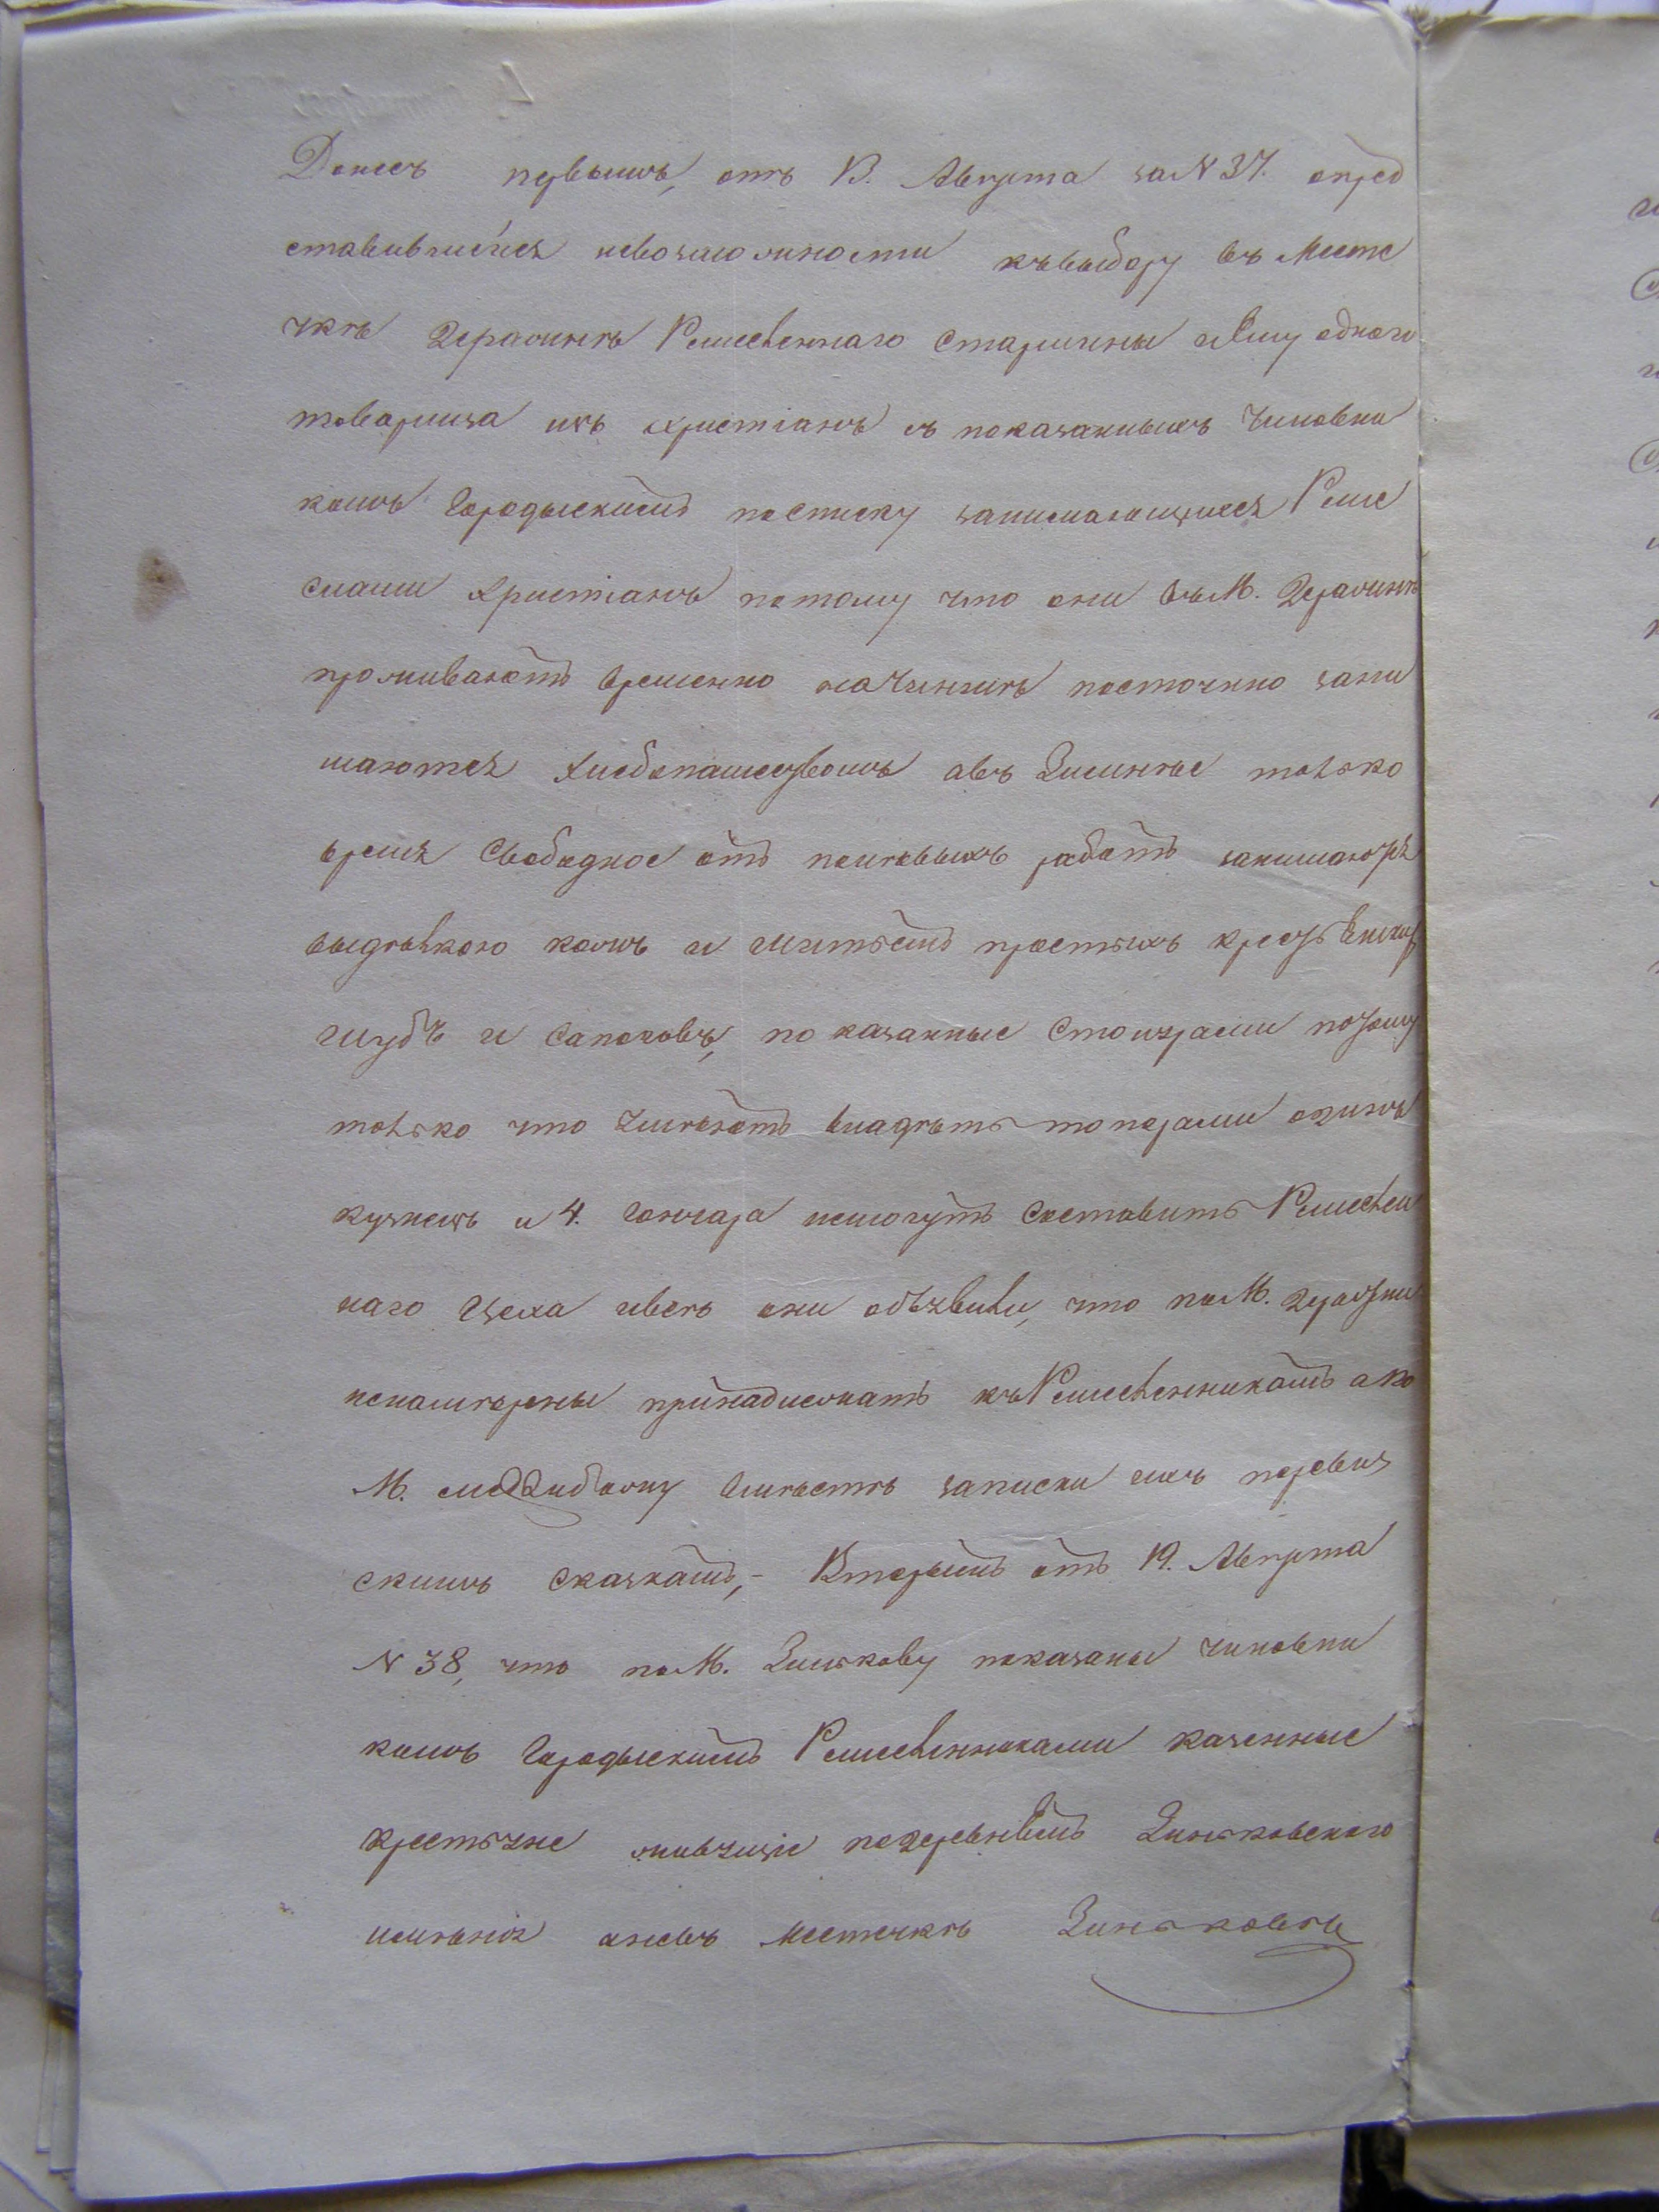 Донесъ первымъ, отъ 13. Августа за N 37. опред
ставившейся невозможности къ выбору въ Месте
чкѣ Деражнѣ Ремесленнаго Старшины иему одного
товарища изъ христіанъ съ показанныхъ Чиновни
комъ Городыскимъ посписку занимающихся Реме
слами Христіанъ потому что они въ М. Деражнѣ
проживаютъ временно постоянно зани
маются Хлебопашествомъ авъ Зимнѣе только
время Свободное отъ работъ занимаются
выдѣлкою кожъ и шитьемъ простыхъ крестьянскихъ
шубъ и Сапоговъ, показанные Столярами потому
только что Умѣютъ владѣть топорами одинъ
кузнецъ и 4. Гончара немогутъ Составить Ремеслен
наго Цеха ивсѣ они объявили, что поМ. Деражни
ненамѣрены принадлежать къ Ремесленникамъ а по
М. Меджибожу вмѣстѣ записки ихъ перевиз
скимъ Сказкамъ,- Вторымъ отъ 19. Августа
N 38, что поМ. Зинькову показаны Чиновни
комъ Городыскимъ Ремесленниками казенные
крестьяне живущіе подеревнямъ Зиньковского
имѣнія аневъ Местечкѣ Зиньковѣ